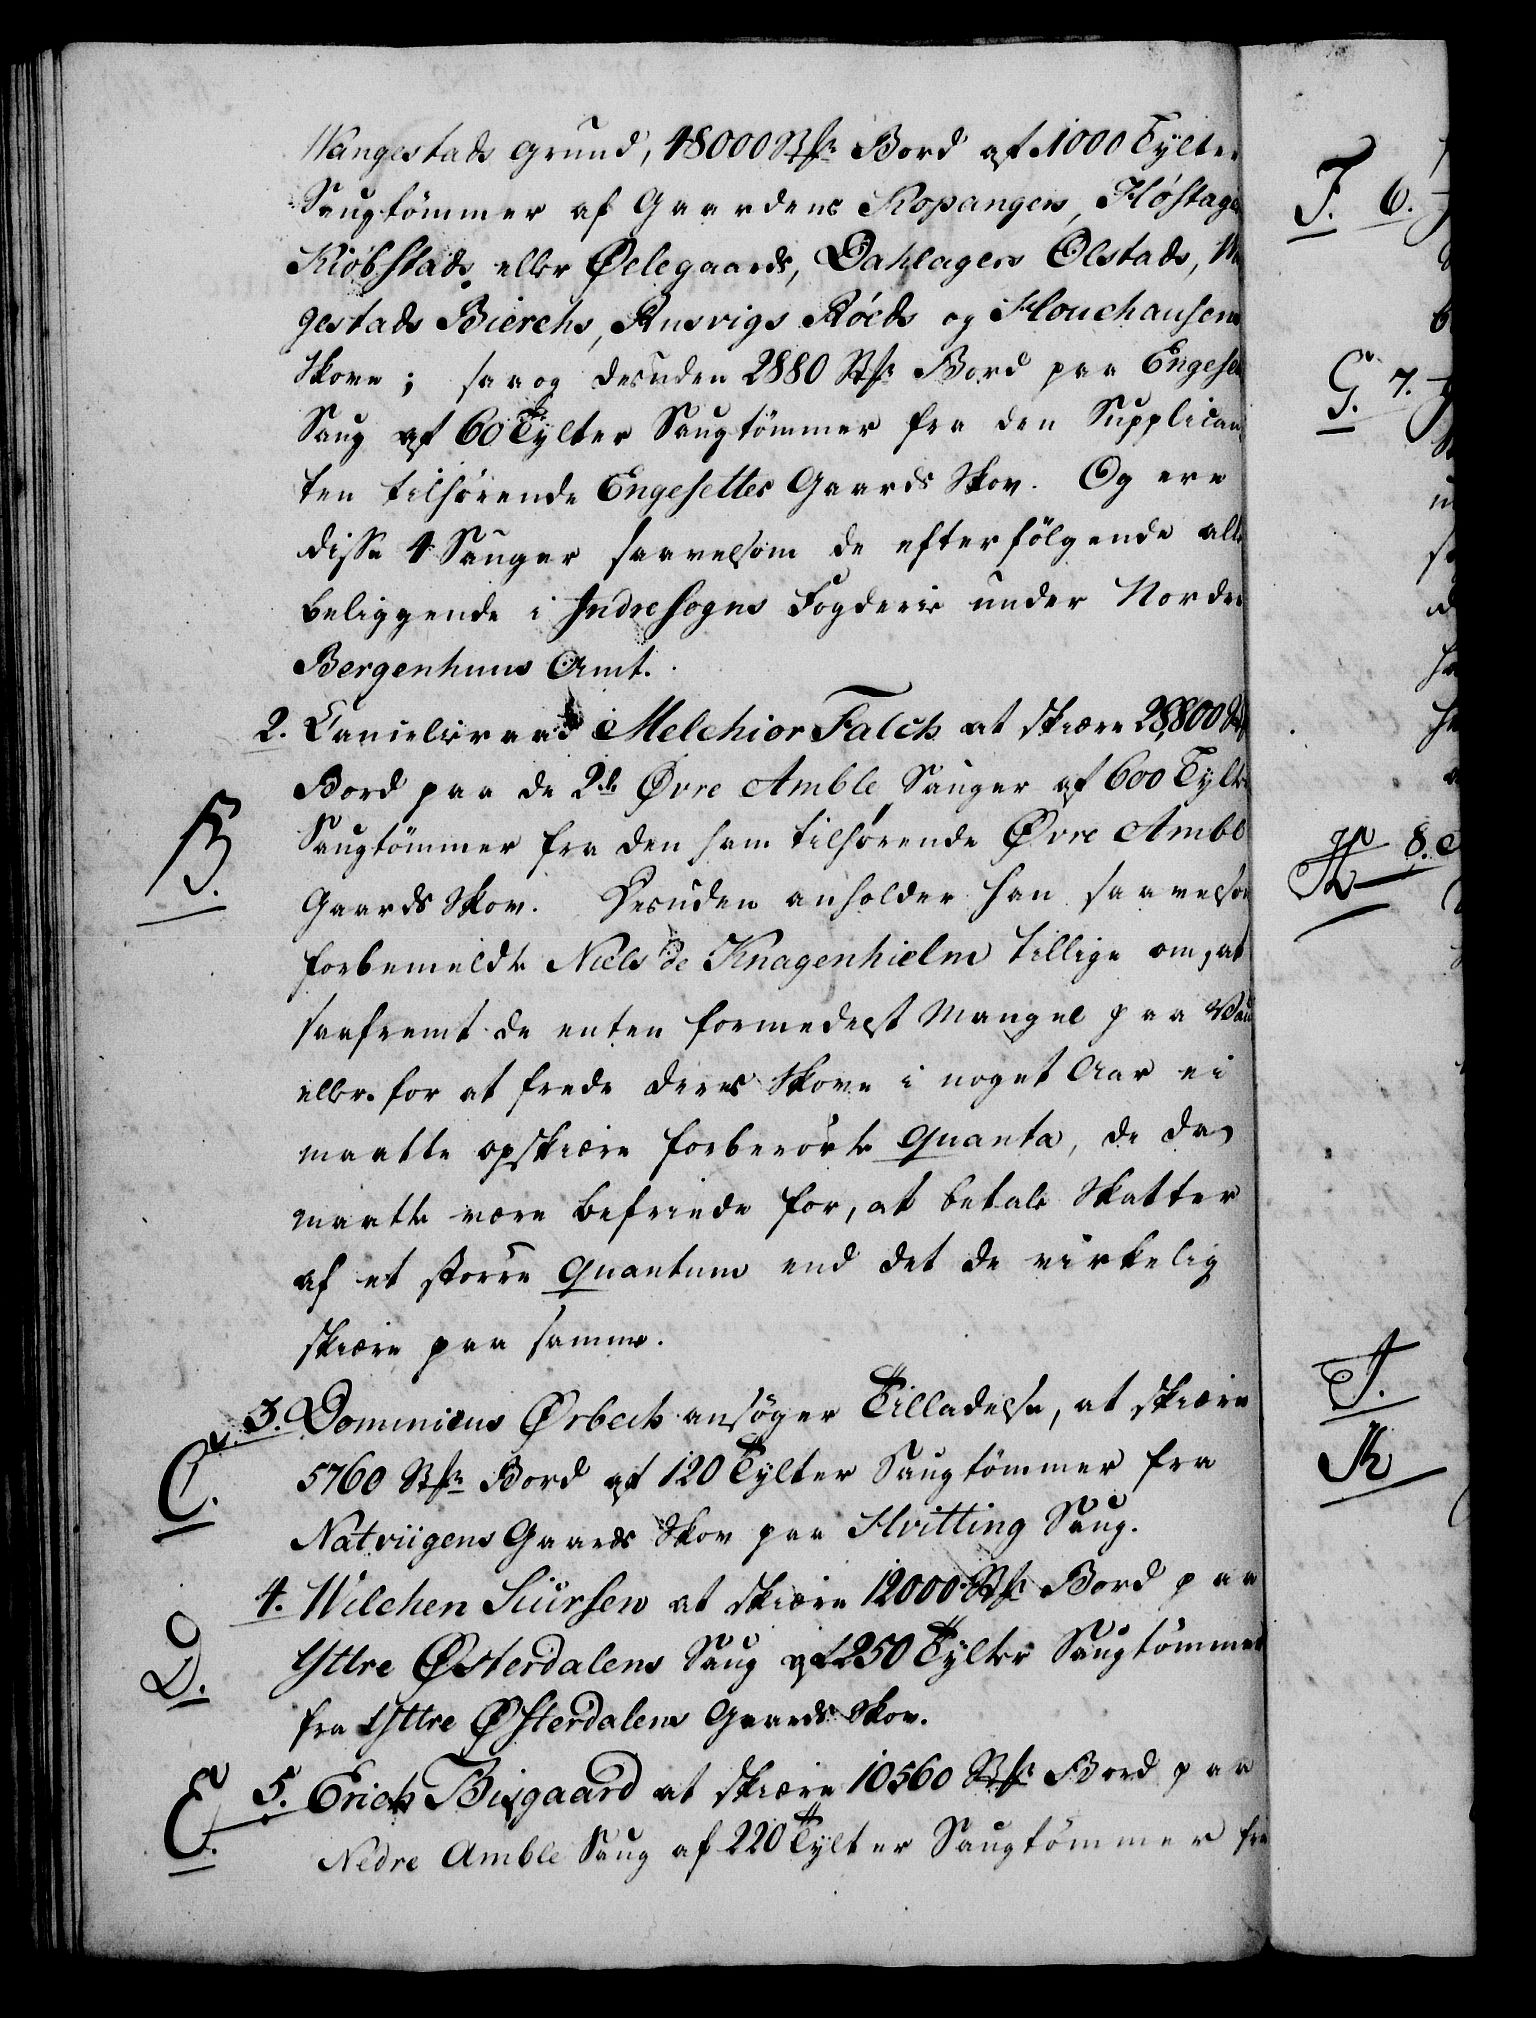 Wangestads Grund, 48000 Stkr Bord af 1000 Tylter
Saugtömmer af Gaardene Kopangers, Fløstages
Kiöbstads eller Ølegaards, Dahlagers Olstads,
gestads Bierchs, Rusvigs Röeds og Flouchausens
Skove; saa og desuden 2880 Stkr Bord paa Engeset
Saug af 60 Tylter Saugtömmer fra den Supplican
ten tilhörende Engesettes Gaards Skov. Og ere
disse 4 Sauger saavelsom de efterfölgende alle
beliggende i Indresogns Fogderie under Nordre
Bergenhuus Amt.
2. Cancelieraad Melchior Falch at skiære 28,800 Stkr
Bord paa de 2de Øvre Amble Sauger af 600 Tylter
B. Saugtömmer fra den ham tilhörende Øvre Amble
Gaards Skov. Desuden anholder han saavelsom
forbemeldte Niels de Knagenhielm tillige om, at
saafremt de enten formedelst Mangel paa Vand
eller for at frede deres Skove i noget Aar ei
maatte opskiære forberörte Quanta, de da
maatte være befriede for, at betale Skatter
af et större Quantum end det de virkelig
skiære paa samme.
C. 3. Dominicus Ørbech ansöger Tilladelse, at skiære
5760 Stkr Bord af 120 Tylter Saugtömmer fra
Natviigens Gaards Skov paa Hvitting Saug.
D. 4. Wilchen Siursen at skiære 12000 Stkr Bord paa
Yttre Østerdalens Saug af 250 Tylter Saugtömmer
fra Yttre Østerdalens Gaards Skov.
E. 5. Erich Bisgaard at skiære 10560 Stkr Bord paa
Nedre Amble Saug af 220 Tylter Saugtömmer fra
F. 6.
G. 7.
H. 8.
I.
K